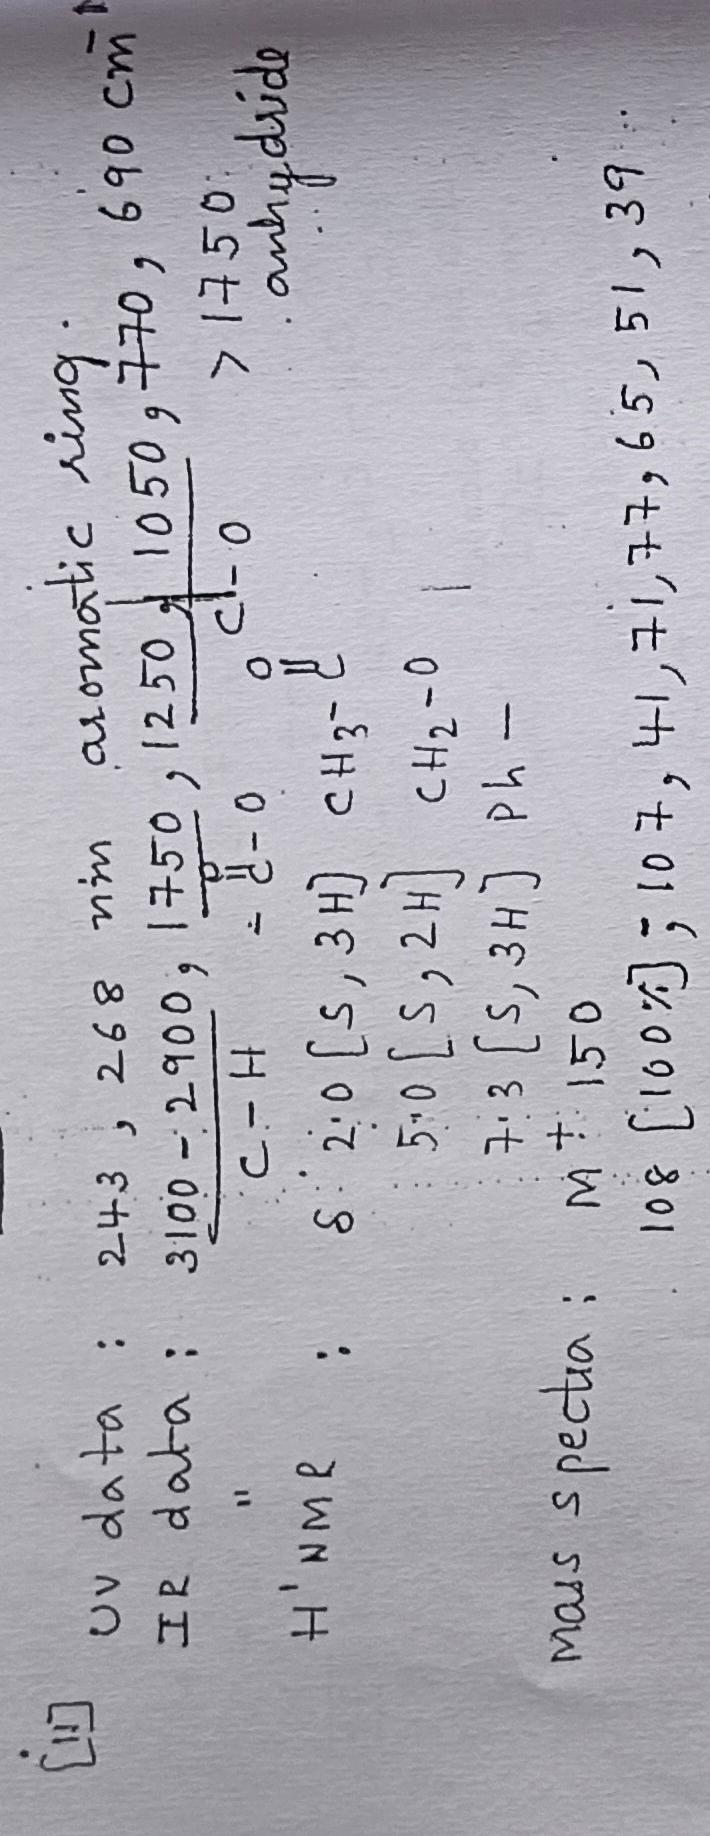 [ii]
UV data : 243, 268 nm aromatic ring.
IR data : 3100-2900, 1750, 1250, 1050, 770, 690 cm⁻¹
" C-H -C-O C-O > 1750
O anhydride
H'NMR : δ 2.0 [S, 3H] CH3-C
O
5.0 [S, 2H] CH2-O
7.3 [S, 3H] Ph-
Mass spectra : M⁺ 150
108 [100%], 107, 41, 71, 77, 65, 51, 39